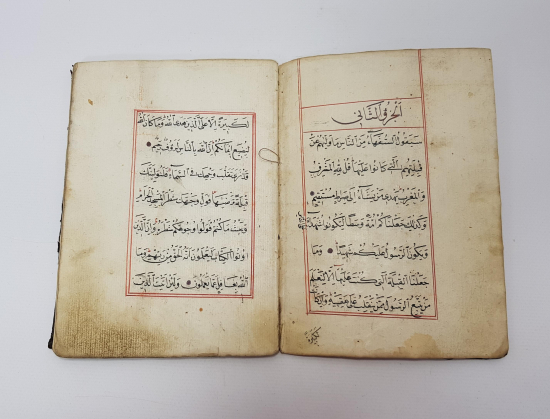 الجزو الثاني
سَيَقُولُ السُّفَهَاءُ مِنَ النَّاسِ مَا وَلّٰيهُمْ عَنْ
قِبْلَتِهِمُ الَّتِي كَانُوا عَلَيْهَا قُلْ لِلّٰهِ الْمَشْرِقُ
وَالْمَغْرِبُ يَهْدِي مَنْ يَشَاءُ اِلٰى صِرَاطٍ مُسْتَقِيمٍ
وَكَذٰلِكَ جَعَلْنَاكُمْ اُمَّةً وَسَطًا لِتَكُونُوا شُهَدَاءَ عَلَى النَّاسِ
وَيَكُونَ الرَّسُولُ عَلَيْكُمْ شَهِيدًا وَمَا
جَعَلْنَا الْقِبْلَةَ الَّتِي كُنْتَ عَلَيْهَا اِلَّا لِنَعْلَمَ
مَنْ يَتَّبِعُ الرَّسُولَ مِمَّنْ يَنْقَلِبُ عَلٰى عَقِبَيْهِ وَاِنْ كَانَتْ
لكبيرة
لَكَبِيرَةً اِلَّا عَلَى الَّذِينَ هَدَى اللّٰهُ وَمَا كَانَ اللّٰهُ
لِيُضِيعَ اِيمَانَكُمْ اِنَّ اللّٰهَ بِالنَّاسِ لَرَؤُفٌ رَحِيمٌ
قَدْ نَرٰى تَقَلُّبَ وَجْهِكَ فِي السَّمَاءِ فَلَنُوَلِّيَنَّكَ
قِبْلَةً تَرْضٰيهَا فَوَلِّ وَجْهَكَ شَطْرَ الْمَسْجِدِ الْحَرَامِ
وَحَيْثُ مَا كُنْتُمْ فَوَلُّوا وُجُوهَكُمْ شَطْرَهُ وَاِنَّ الَّذِينَ
اُوتُوا الْكِتَابَ لَيَعْلَمُونَ اَنَّهُ الْحَقُّ مِنْ رَبِّهِمْ وَمَا
اللّٰهُ بِغَافِلٍ عَمَّا يَعْمَلُونَ وَلَئِنْ اَتَيْتَ الَّذِينَ